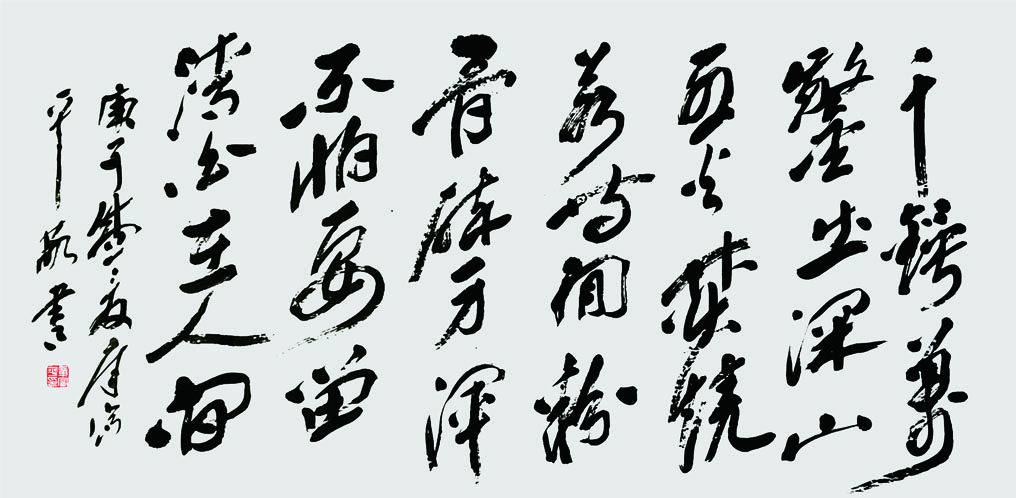 千錘萬
鑿出深山
烈火焚燒
若等閒粉
骨碎身渾
不怕要留
清白在人間
庚子
平書